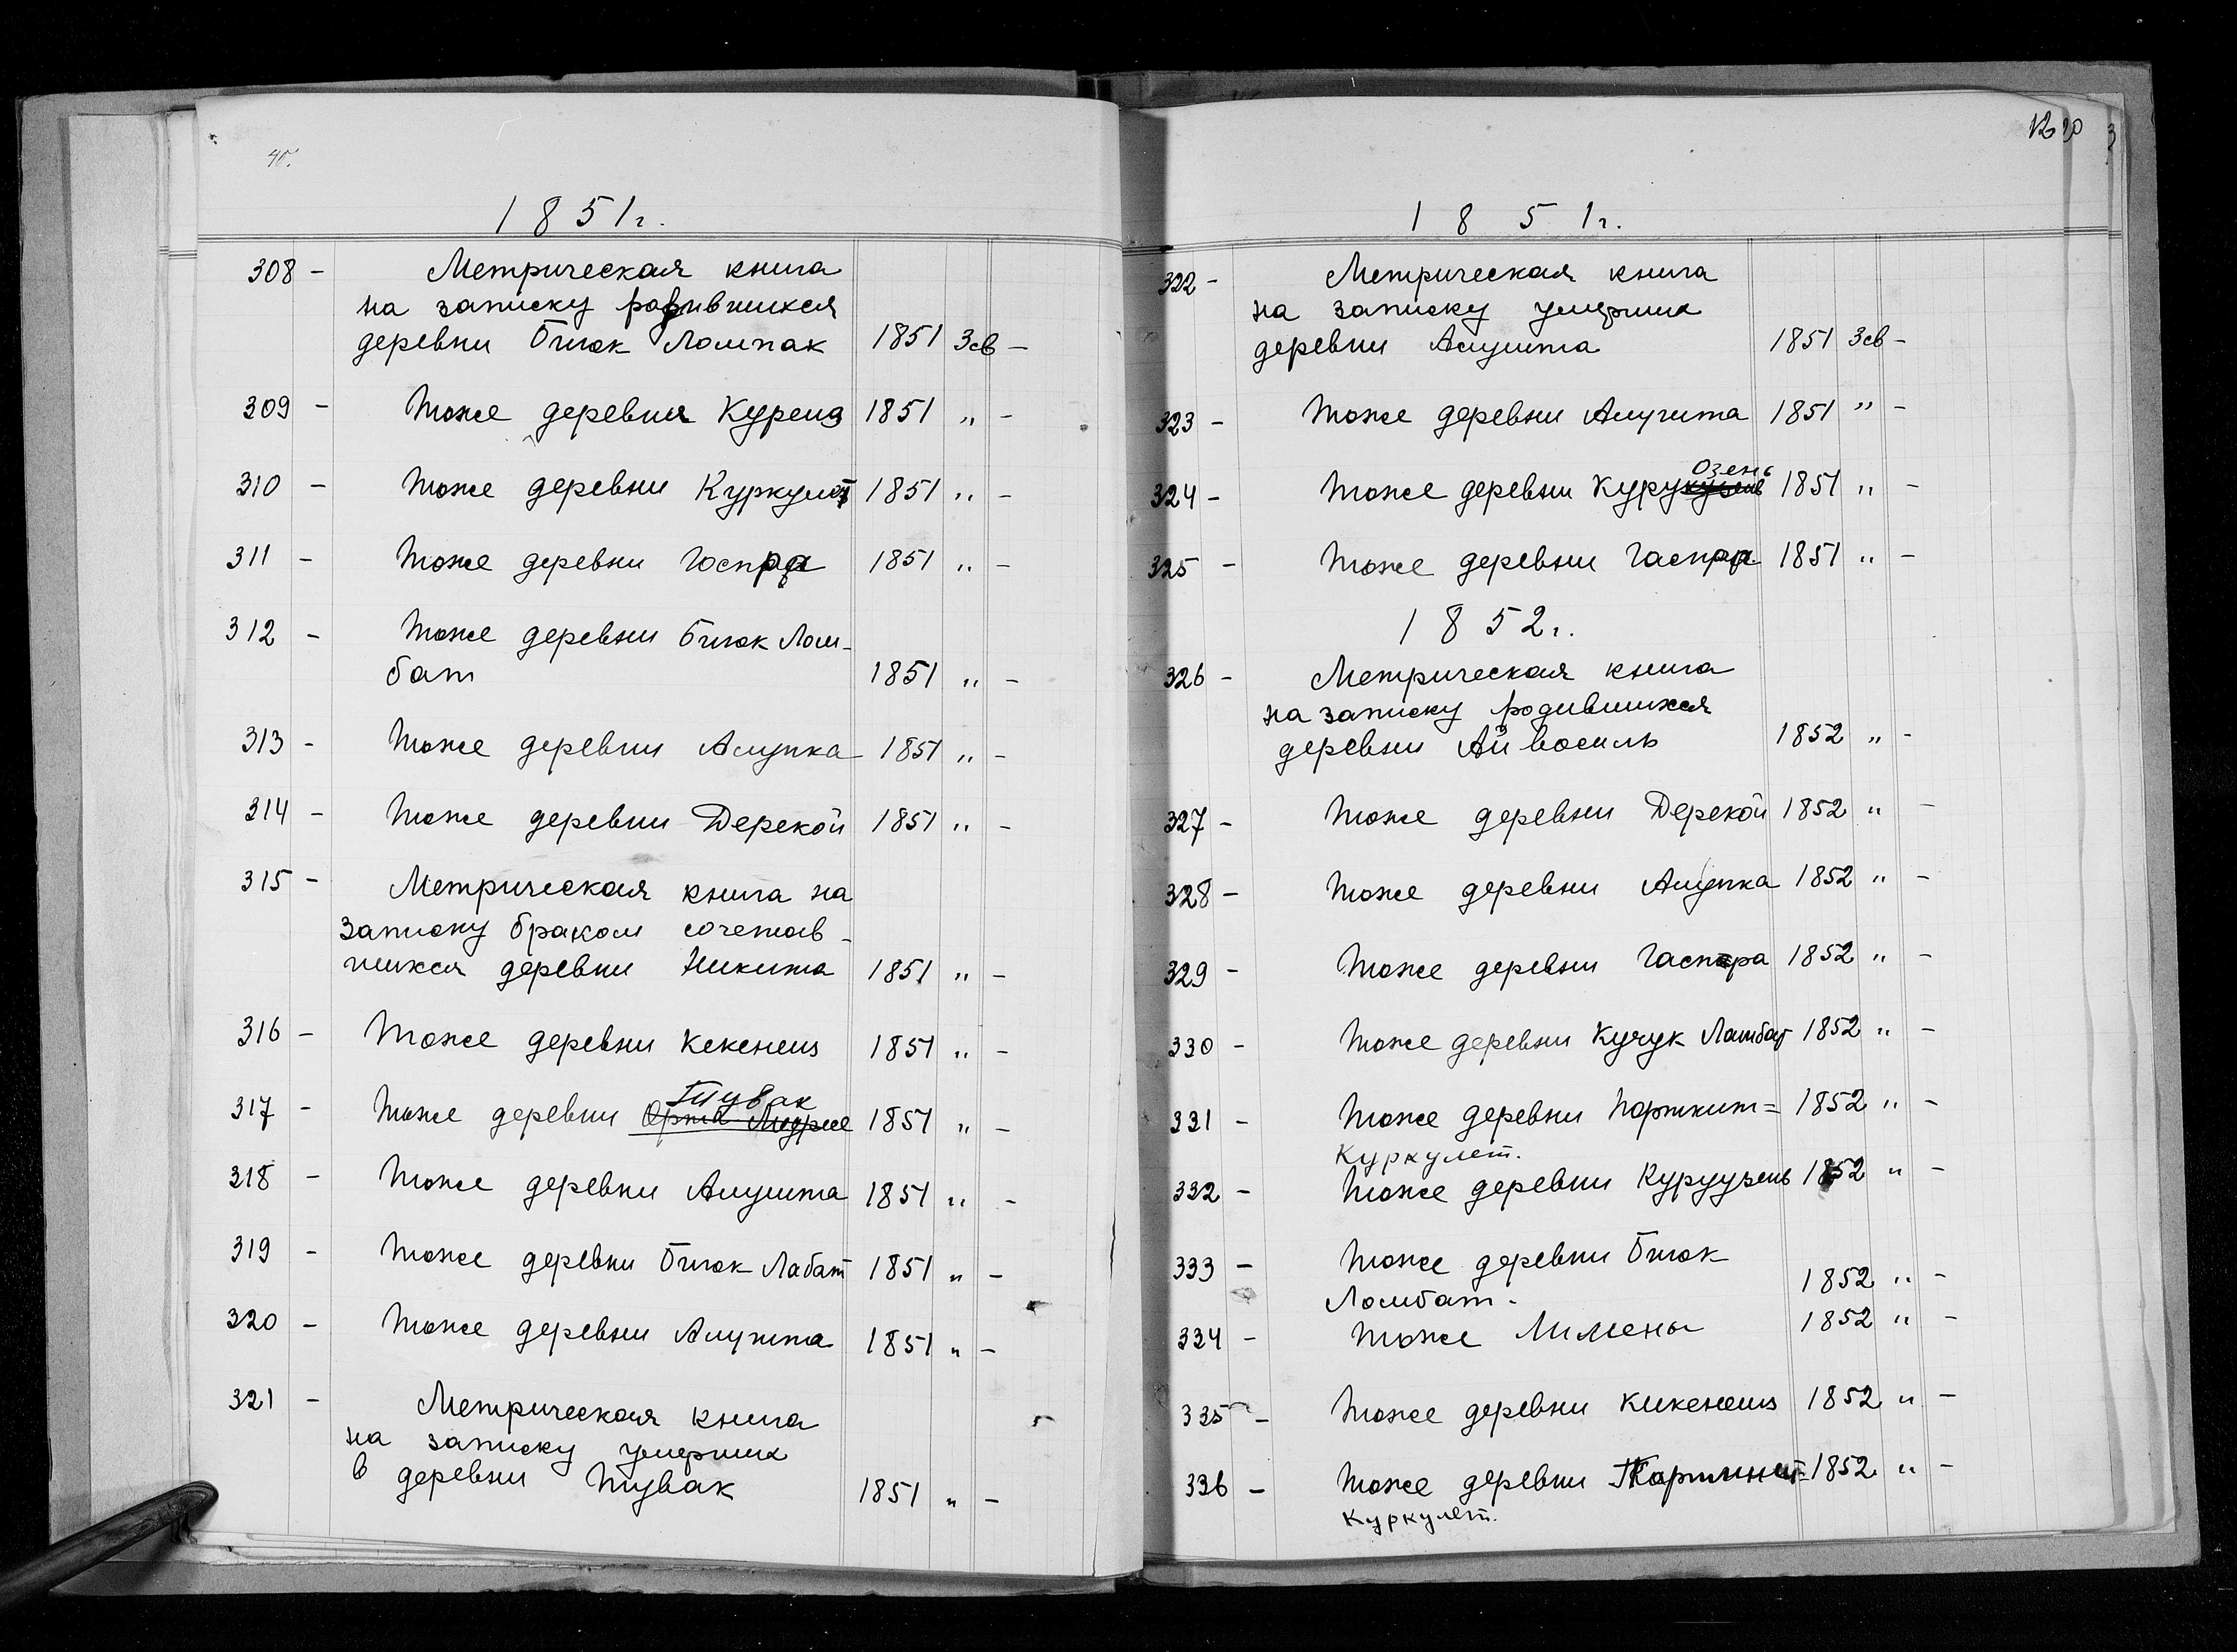 40.
1851г.
308 - Метрическая книга
на записку родившихся
деревни Биюк Ломпак 1851 3св -
309 - Тоже деревни Куреиз 1851 " -
310 - Тоже деревни Куркулет 1851 " -
311 - Тоже деревни Гаспра 1851 " -
312 - Тоже деревни Биюк Лам-
бат 1851 " -
313 - Тоже деревни Алупка 1851 " -
314 - Тоже деревни Дерекой 1851 " -
315 - Метрическая книга на
записку браком сочетав-
шихся деревни Никита 1851 " -
316 - Тоже деревни Кекенеиз 1851 " -
Тувак
317 - Тоже деревни 1851 " -
318 - Тоже деревни Алушта 1851 " -
319 - Тоже деревни Биюк Лабат 1851 " -
320 - Тоже деревни Алупка 1851 " -
321 - Метрическая книга
на записку умерших
в деревни Тувак 1851 " -
1851г.
322 - Метрическая книга
на записку умерших
деревни Алушта 1851 3св -
323 - Тоже деревни Алушта 1851 " -
Озень
324 - Тоже деревни Куру 1851 " -
325 - Тоже деревни Гаспра 1851 " -
1852г.
326 - Метрическая книга
на записку родившихся
деревни Ай василь 1852 " -
327 - Тоже деревни Дерекой 1852 " -
328 - Тоже деревни Алупка 1852 " -
329 - Тоже деревни Гаспра 1852 " -
330 - Тоже деревни Кучук Ламбат 1852 " -
331 - Тоже деревни Парткит= 1852 " -
Куркулет.
332 - Тоже деревни Куруузень 1852 " -
333 - Тоже деревни Биюк
Ламбат - 1852 " -
334 - Тоже Лимены 1852 " -
335 - Тоже деревни Кикенеиз 1852 " -
336 - Тоже деревни 1852 " -
Куркулет.